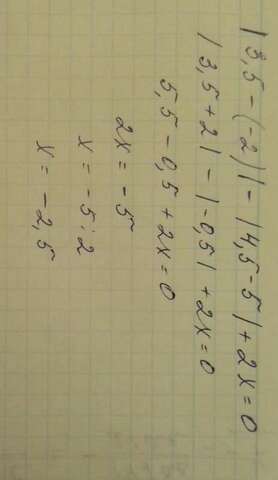 |3,5 - (-2)| - |4,5 - 5| + 2x = 0
|3,5 + 2| - |-0,5| + 2x = 0
5,5 - 0,5 + 2x = 0
2x = -5
x = -5:2
x = -2,5